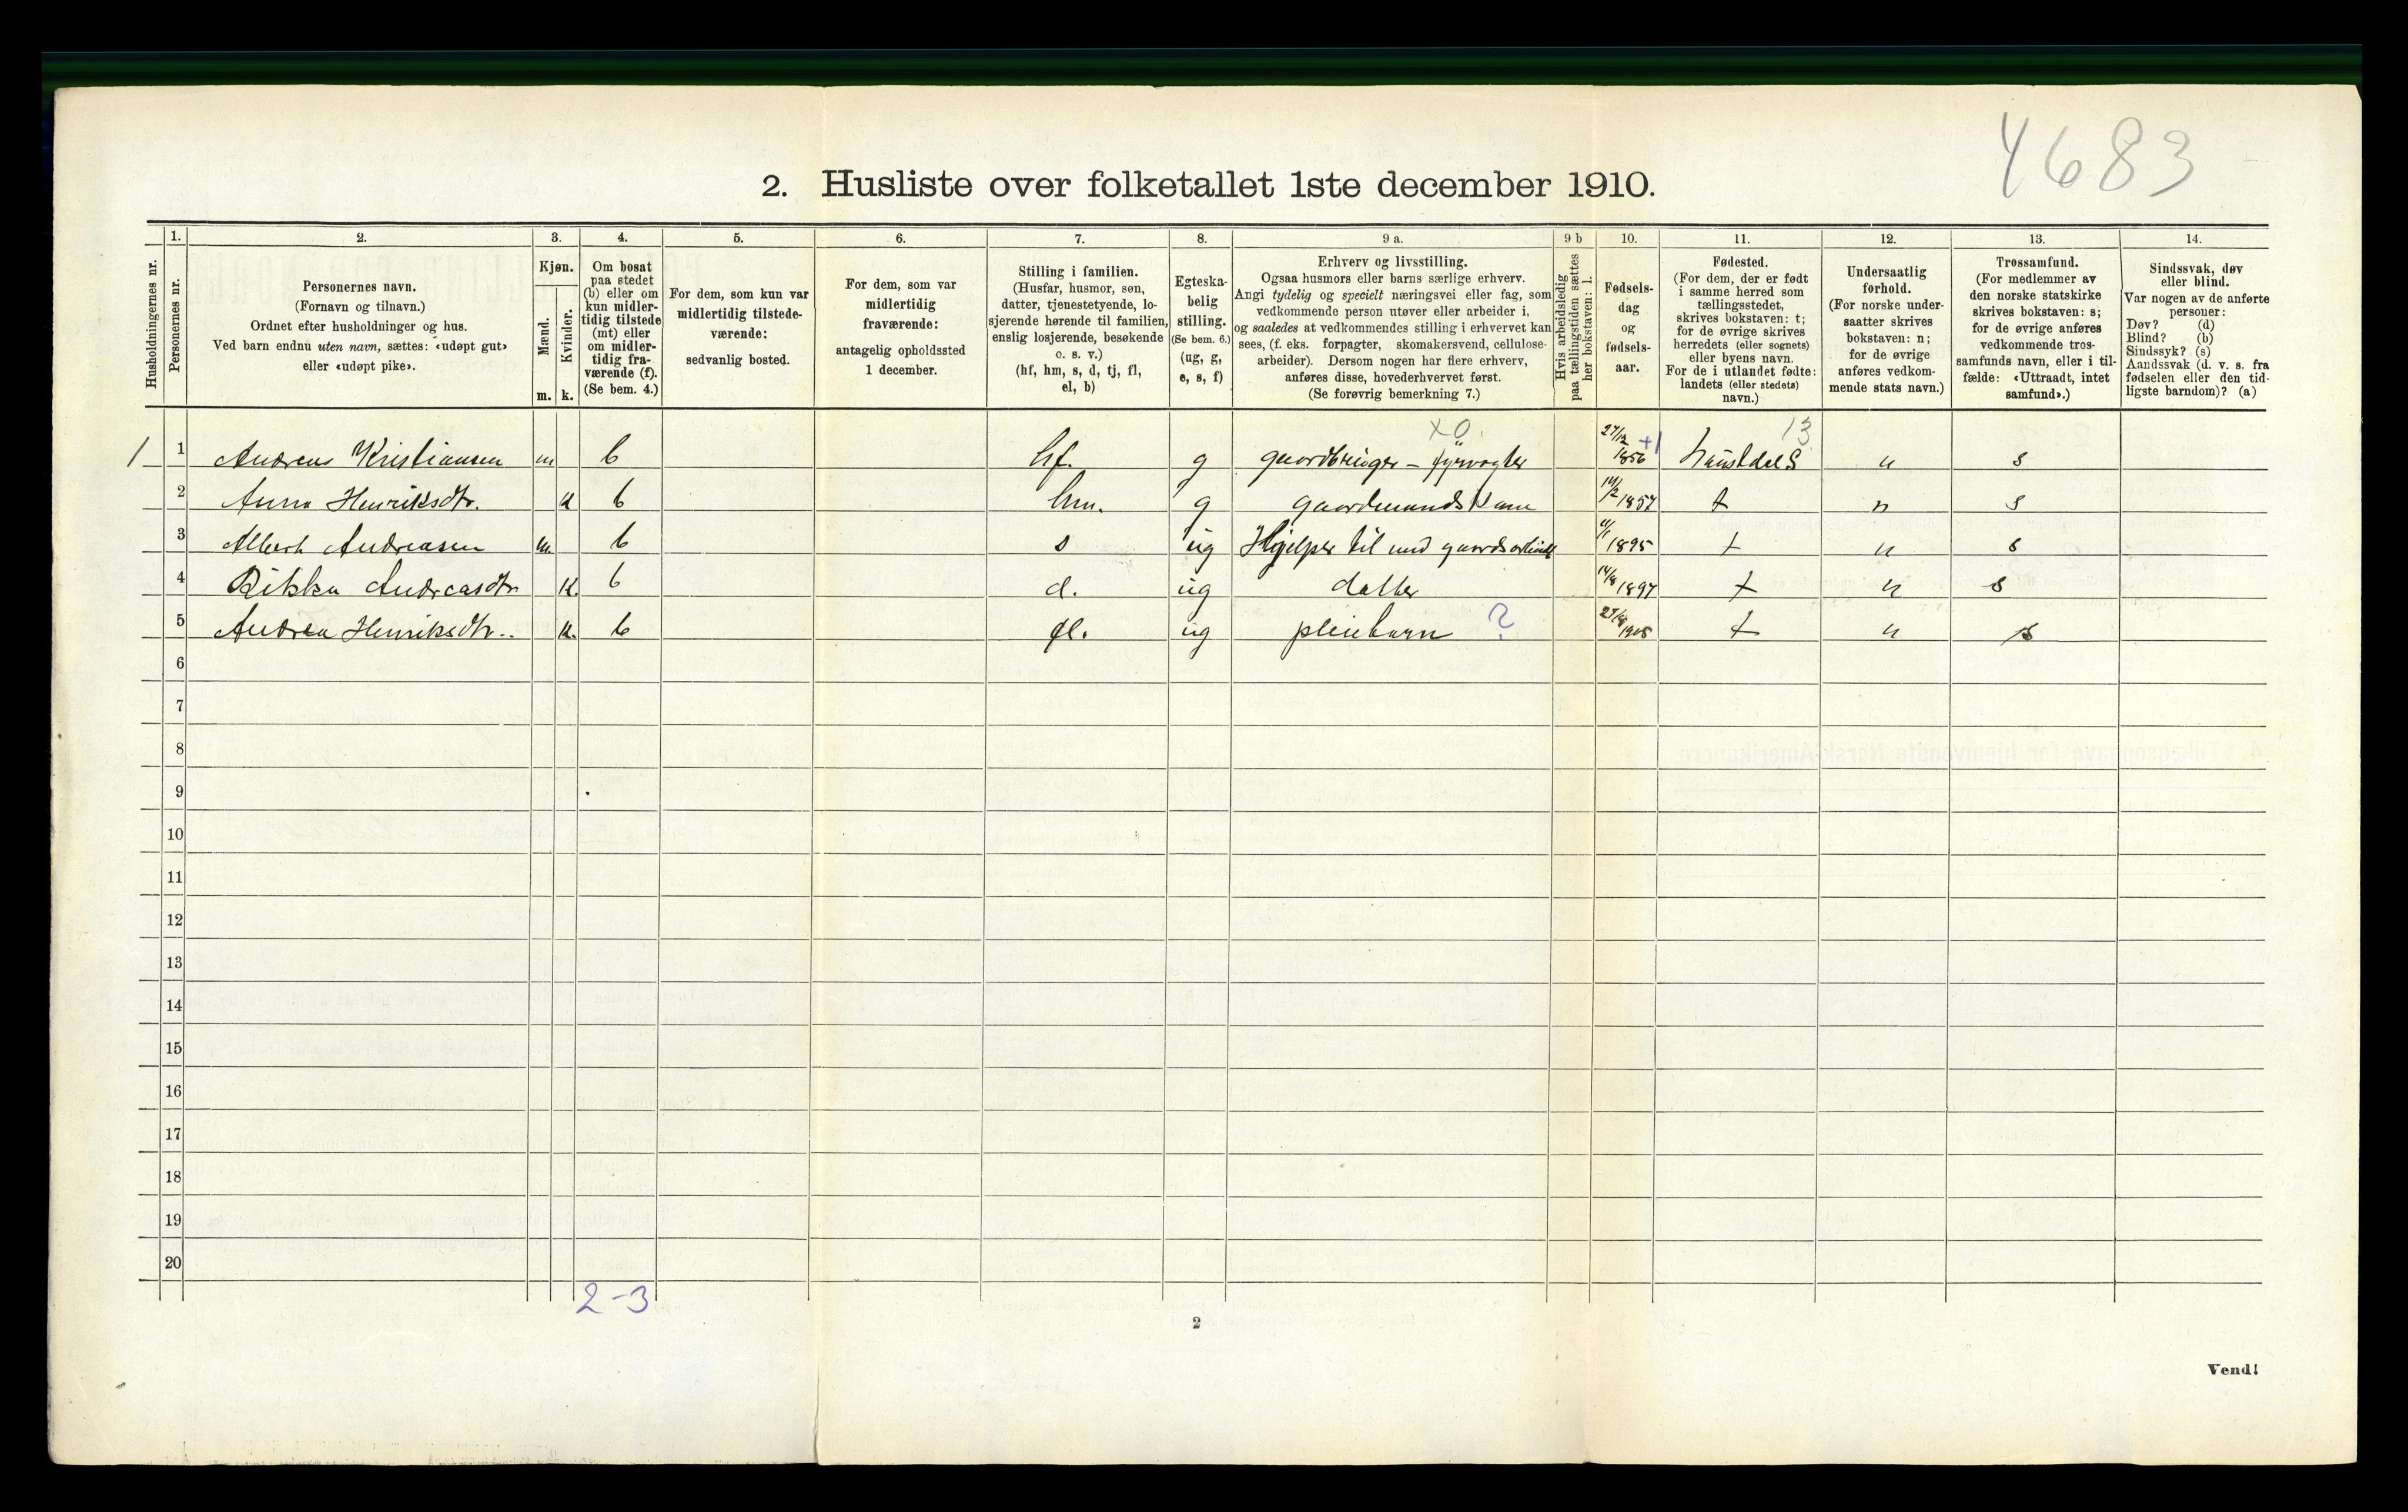 4683
2. Husliste over folketallet 1ste december 1910.
Husholdningernes nr.
1.
Personernes nr.
2.
Personernes navn.
(Fornavn og tilnavn.)
Ordnet efter husholdninger og hus.
Ved barn endnu uten navn, sættes: «udøpt gut»
eller «udøpt pike».
3.
Kjøn.
Mænd.
Kvinder.
m. k.
4.
Om bosat
paa stedet
(b) eller om
kun midler-
tidig tilstede
(mt) eller
om midler-
tidig fra-
værende (f).
(Se bem. 4.)
5.
For dem, som kun var
midlertidig tilstede-
værende:
sedvanlig bosted.
6.
For dem, som var
midlertidig
fraværende:
antagelig opholdssted
1 december.
7.
Stilling i familien.
(Husfar, husmor, søn,
datter, tjenestetyende, lo-
sjerende hørende til familien,
enslig losjerende, besøkende
o. s. v.)
(hf, hm, s, d, tj, fl,
el, b)
8.
Egteska-
belig
stilling.
(Se bem. 6.)
(ug, g,
e, s, f)
9 a.
Erhverv og livsstilling.
Ogsaa husmors eller barns særlige erhverv.
Angi tydelig og specielt næringsvei eller fag, som
vedkommende person utøver eller arbeider i,
og saaledes at vedkommendes stilling i erhvervet kan
sees, (f. eks. forpagter, skomakersvend, cellulose-
arbeider). Dersom nogen har flere erhverv,
anføres disse, hovederhvervet først.
(Se forøvrig bemerkning 7.)
9 b
Hvis arbeidsledig
paa tællingstiden sættes
her bokstaven: l.
10.
Fødsels-
dag
og
fødsels-
aar.
11.
Fødested.
(For dem, der er født
i samme herred som
tællingsstedet,
skrives bokstaven: t;
for de øvrige skrives
herredets (eller sognets)
eller byens navn.
For de i utlandet fødte:
landets (eller stedets)
navn.)
12.
Undersaatlig
forhold.
(For norske under-
saatter skrives
bokstaven: n;
for de øvrige
anføres vedkom-
mende stats navn.)
13.
Trossamfund.
(For medlemmer av
den norske statskirke
skrives bokstaven: s;
for de øvrige anføres
vedkommende tros-
samfunds navn, eller i til-
fælde: «Uttraadt, intet
samfund».)
14.
Sindssvak, døv
eller blind.
Var nogen av de anførte
personer:
Døv? (d)
Blind? (b)
Sindssyk? (s)
Aandssvak (d. v. s. fra
fødselen eller den tid-
ligste barndom)? (a)
x0. 13
1 1 Andreas Kristiansen m b hf. g gaardbruger – fyrvogter 27/12 1856 +1 n s
2 Anna Henriksdtr. k b hm. g gaardmandskone 1857 t n s
3 Albert Andreasen m. b s ug Hjelper til med gaardsarbeide 1895 t n s
4 Rikka Andreasdtr k. b d. ug datter 14/8 1897 t n s
5 Andrea Henriksdtr.. k. b fl. ug pleiebarn ? 1905 t n s
6
7
8
9
10
11
12
13
14
15
16
17
18
19
20
2-3
2
Vend!